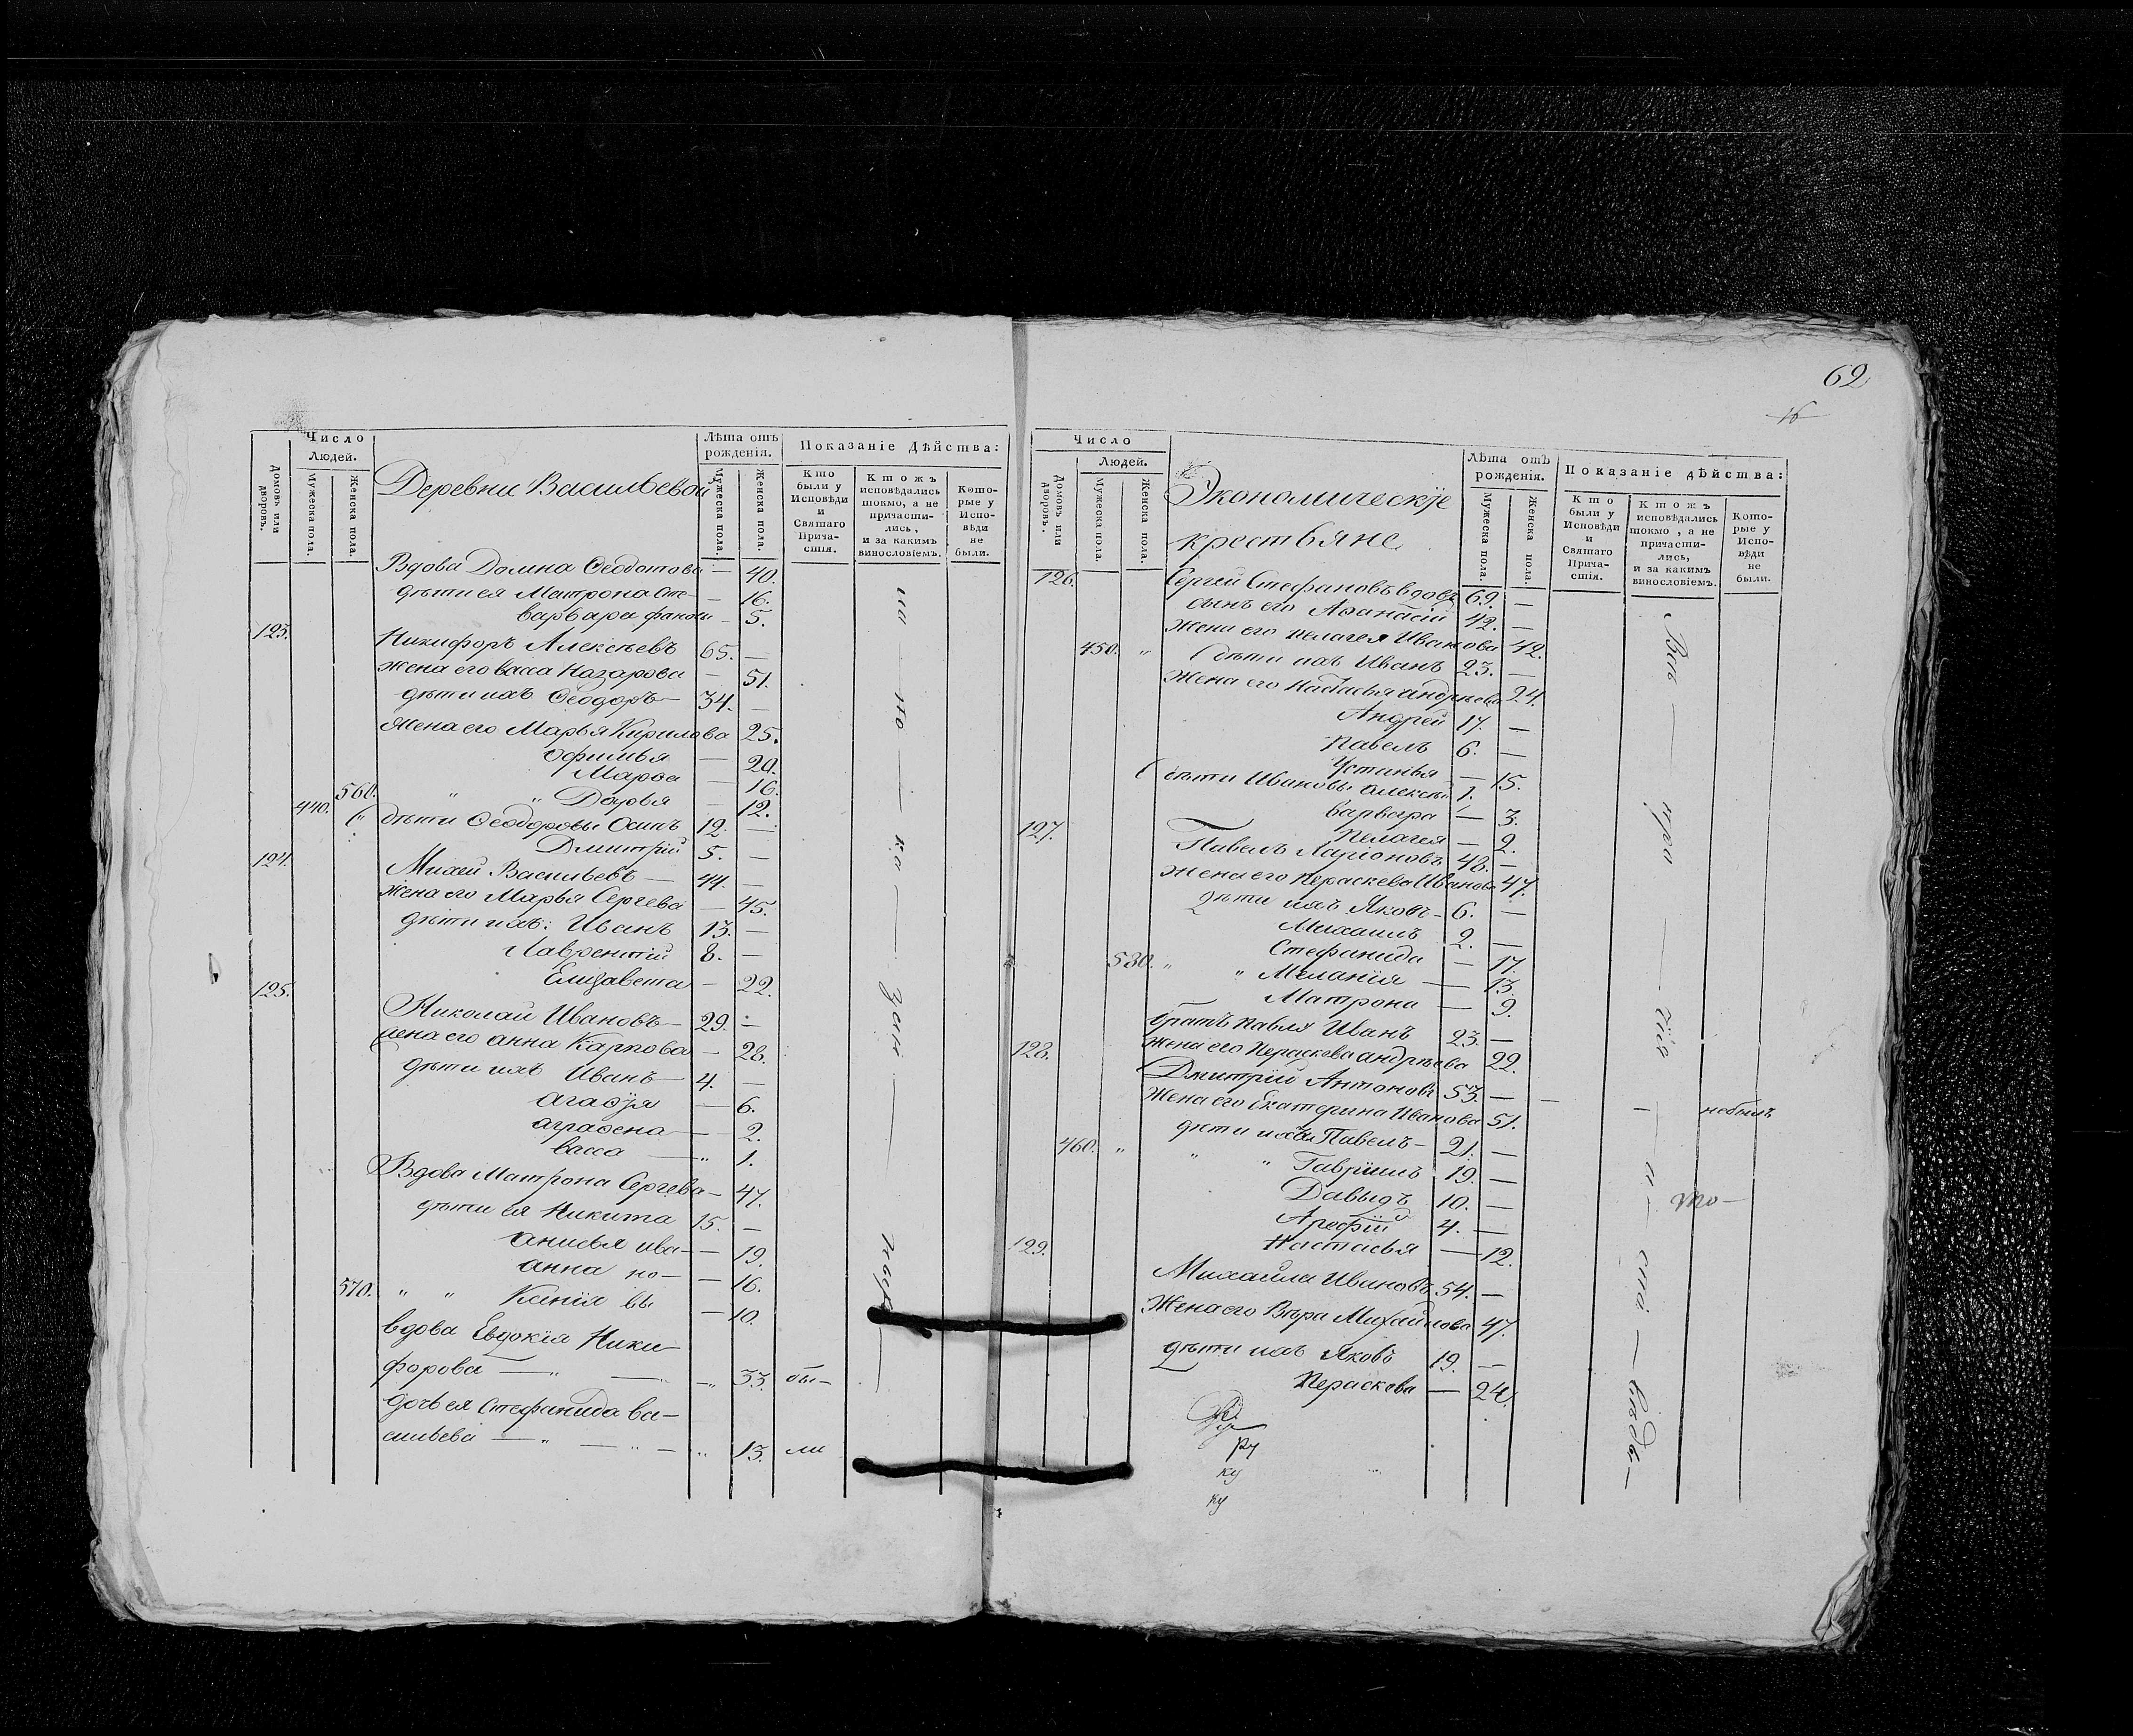 Число
Людей.
Домовъ или дворовъ.
Мужеска пола.
Женска пола.
Деревни Васильевой
Лѣта отъ рожденія.
Мужеска пола.
Женска пола.
Показаніе Дѣйства:
Кто были у Исповѣди и Святаго Причастія.
Ктожъ исповѣдались токмо, а не причастились, и за какимъ винословіемъ.
Которые у Исповѣди не были.
Вдова Домна Ѳеодотова — 40.
дѣти ея Матрона Сте- — 16.
варвара фановы — 5.
123.
Никифоръ Алексѣевъ 65. —
жена его васса Назарова — 51.
дѣти ихъ Ѳеодоръ — 34. —
Жена его Марья Кирилова 25.
Офимья — 20.
Марѳа — 16.
560. " " Дарья — 12.
440. " дѣти Ѳеодоровы Осипъ 12. —
Дмитрій 5. —
124.
Михей Васильевъ — 44. —
жена его Марья Сергева — 45.
дѣти ихъ: Иванъ 13. —
Лаврентій 8. —
Елизавета — 22.
125.
Николай Ивановъ — 29. —
жена его анна Карпова — 28.
дѣти ихъ Иванъ — 4. —
агаѳія — 6.
аграѳена — 2.
васса — " 1.
Вдова Матрона Сергева — 47.
дѣти ея Никита 15. —
анисья ива- — 19.
анна но- — 16.
570. " " Ксенія вы — 10.
вдова Евдокія Ники-
форова — " — " 33. бы-
дочь ея Стефанида ва-
сильева — " — " — " 13. ли
Число
Людей.
Домовъ или дворовъ.
Мужеска пола.
Женска пола.
Экономическіе
крестьяне
Лѣта отъ рожденія.
Мужеска пола.
Женска пола.
Показаніе дѣйства:
Кто были у Исповѣди и Святаго Причастія.
Ктожъ исповѣдались токмо, а не причастились, и за какимъ винословіемъ.
Которые у Исповѣди не были.
62
16
126.
Сергей Стефановъ вдовъ 69. —
сынъ его Аѳанасій 42. —
жена его пелагея Иванова 42.
450. " дѣти ихъ Иванъ 23. —
Жена его Настасья андрѣева 24.
Андрей 17. —
Павелъ 6. —
Устинья — 15.
дѣти Ивановы алексѣй 1.
варвара — 3.
Пелагея — 2.
127.
Павелъ Ларіоновъ 48. —
жена его Пераскева Иванова 47.
дѣти ихъ Яковъ — 6. —
Михаилъ 2. —
Стефанида — 17.
580. " " Меланія — 13.
Матрона — 9.
братъ павла Иванъ 23. —
жена его Пераскева андрѣева 22.
128.
Дмитрій Антоновъ 53. — — — небылъ
Жена его Екатерина Иванова 51.
дѣти ихъ Павелъ — 21. —
460. " " " Гавріилъ 19. —
Давыдъ 10. — то —
Арефій 4. —
Настасья — 12.
129.
Михайла Ивановъ 54. —
Жена его Вѣра Михайлова 47.
дѣти ихъ Яковъ 19. —
Пераскева — 24.
ру
ку
ку